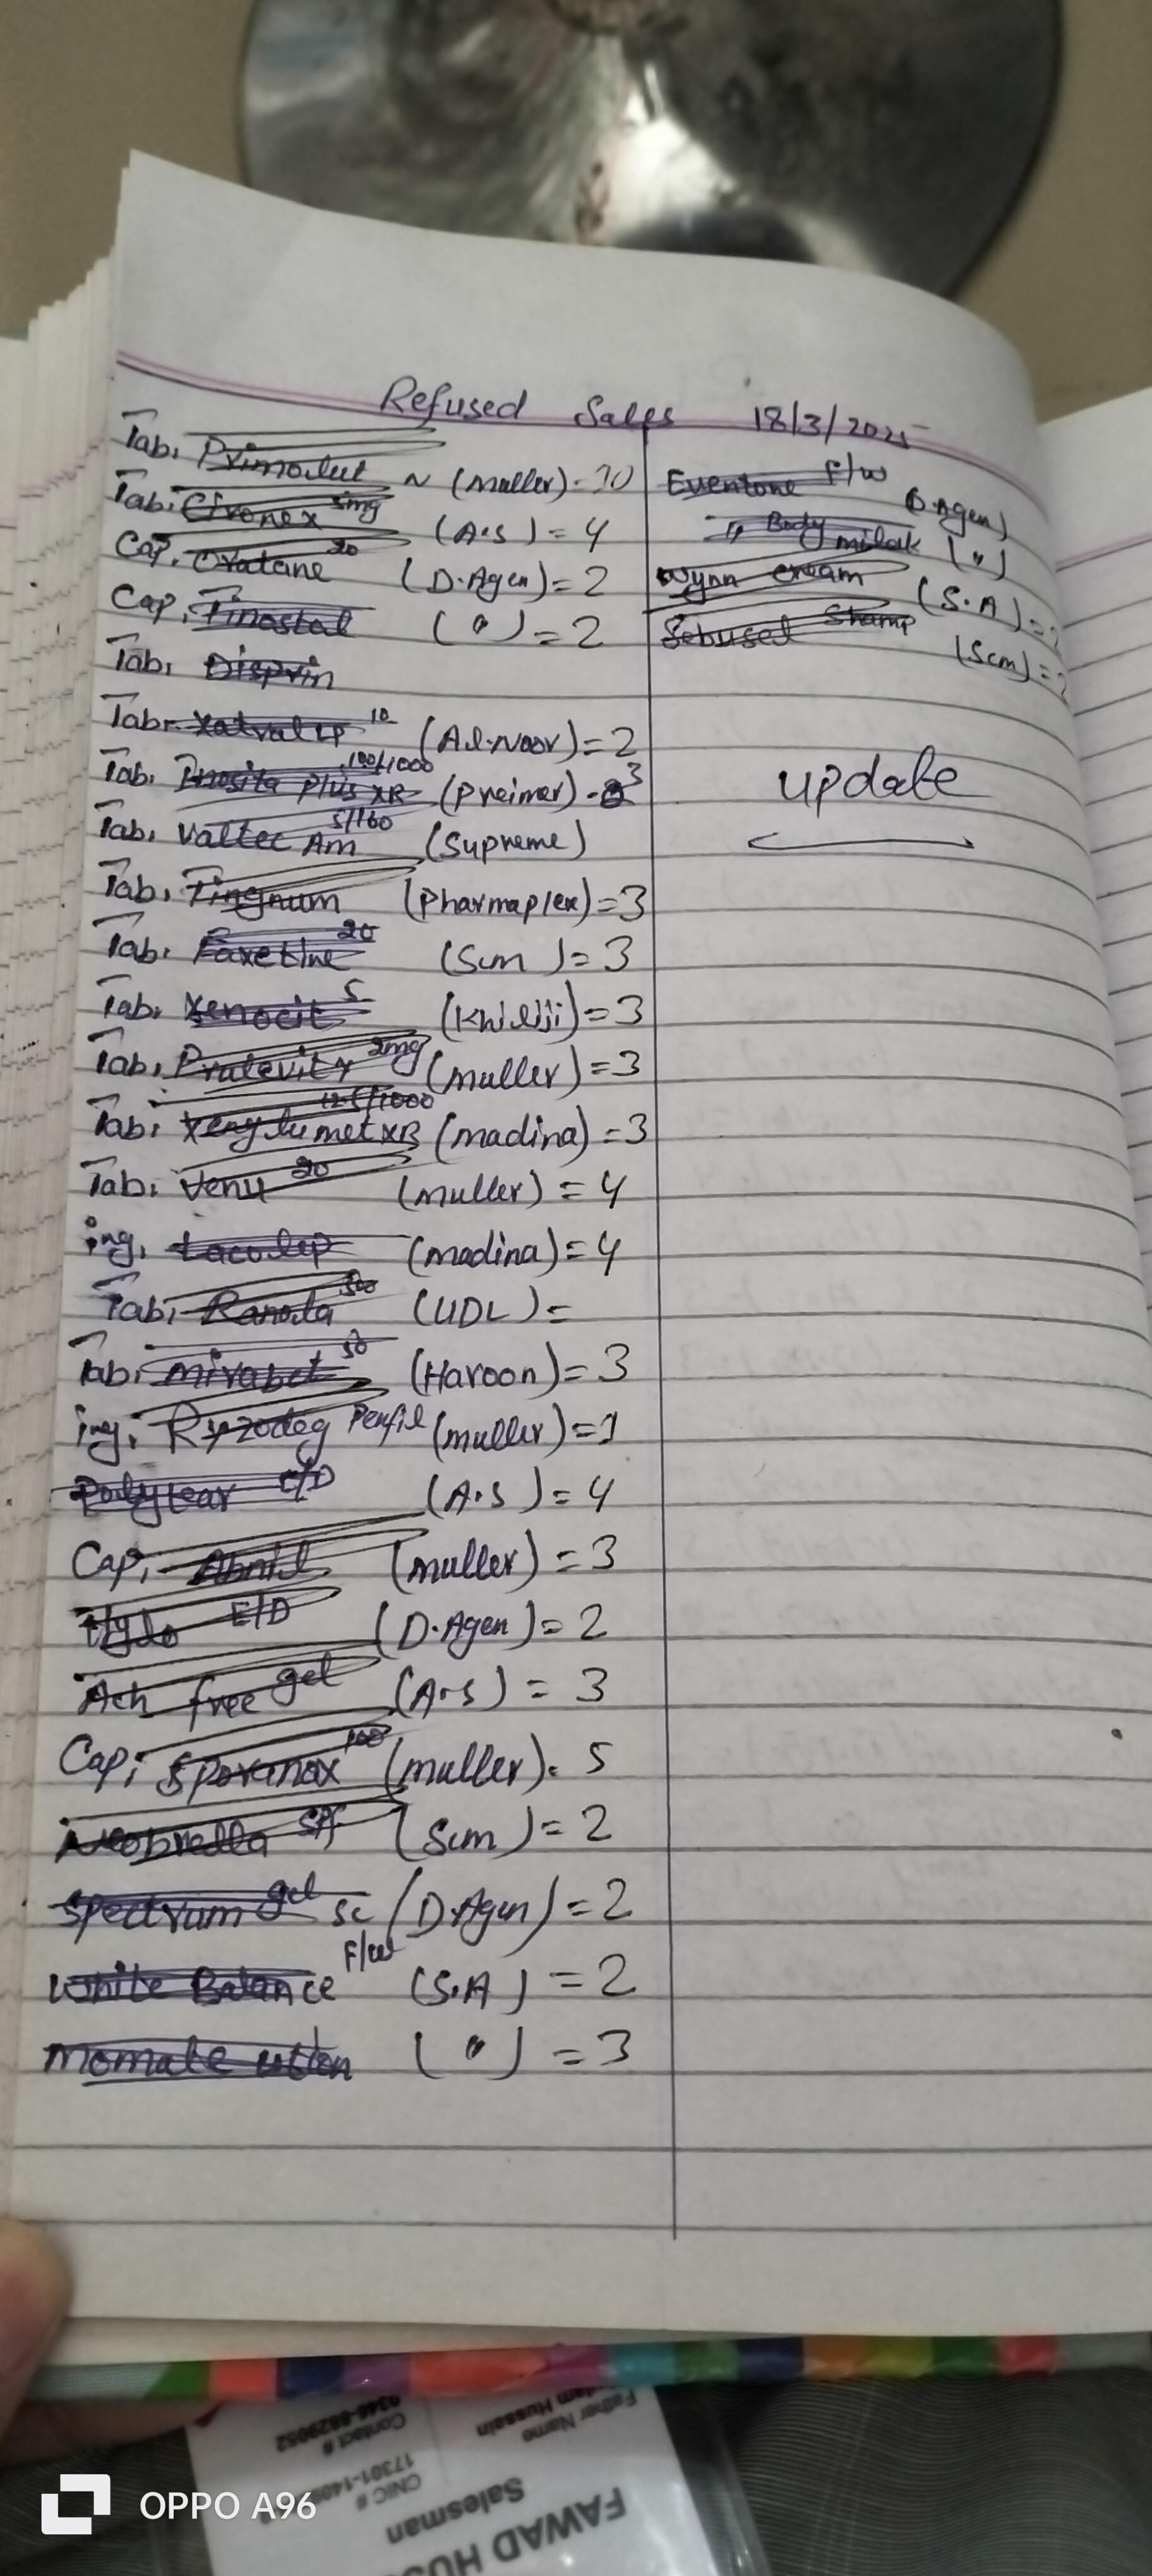 Refused Sales 18/3/2025
Tab. Primolut N (muller) = 10
Tab. 5mg (A.S) = 4
Cap. Oratane 20 (D.Agen) = 2
Cap. (") = 2
Tab. Disprin
Tab. Xatral LP 10 (Al.Noor) = 2
Tab. Inosita Plus XR 100/1000 (Preimer) - 3
Tab. Valtec Am 5/160 (Supreme)
Tab. Tingnum (Pharmaplex) = 3
Tab. Faxetine 20 (Scm) = 3
Tab. Xenocit 5 (Khiliji) = 3
Tab. 2mg (muller) = 3
Tab. Xenglumet XR 12.5/1000 (madina) = 3
Tab. 20 (muller) = 4
inj. Lacolep (madina) = 4
Tab. Ranola 500 (UDL) =
Tab. mirabet 50 (Haroon) = 3
inj. Ryzodeg Penfil (muller) = 1
Polytear E/D (A.S) = 4
Cap. (muller) = 3
Hylo E/D (D.Agen) = 2
Ach free gel (A.S) = 3
Cap. Sporanox 100 (muller) = 5
Neobrella SPF (Scm) = 2
Spectrum gel sc (D.Agen) = 2
White Balance F/W (S.A) = 2
Momate (") = 3
Eventone F/W (D.Agen)
" Body milak (")
Wynn cream (S.A) =
Shamp (Scm) =
update
Father Name
Contact #
CNIC #
Salesman
OPPO A96